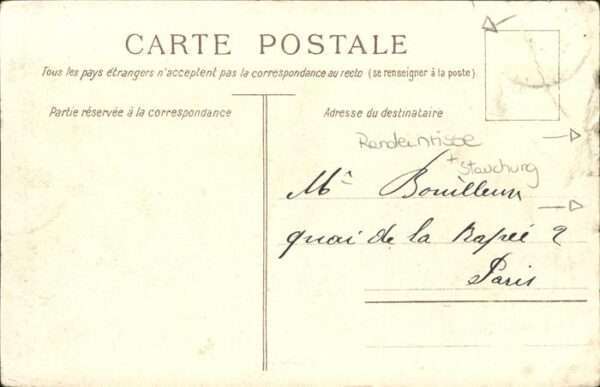 CARTE POSTALE
Tous les pays étrangers n'acceptent pas la correspondance au recto (se renseigner à la poste)
Partie réservée à la correspondance
Adresse du destinataire
Randeinrisse
+ Stauchung
Mr Bouilleux
quai de la Rapée 2
Paris